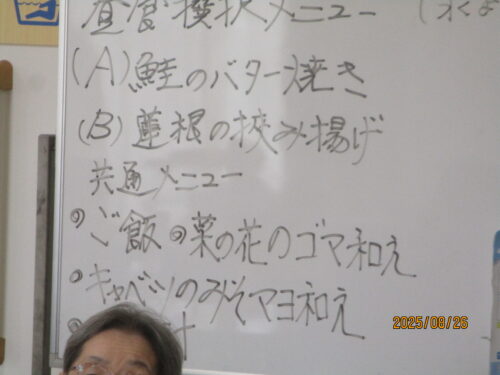 昼食選択メニュー
(A)鮭のバター焼き
(B)蓮根の挟み揚げ
共通メニュー
◦ご飯 ◦菜の花のゴマ和え
◦キャベツのみそマヨ和え
汁
2025/08/26